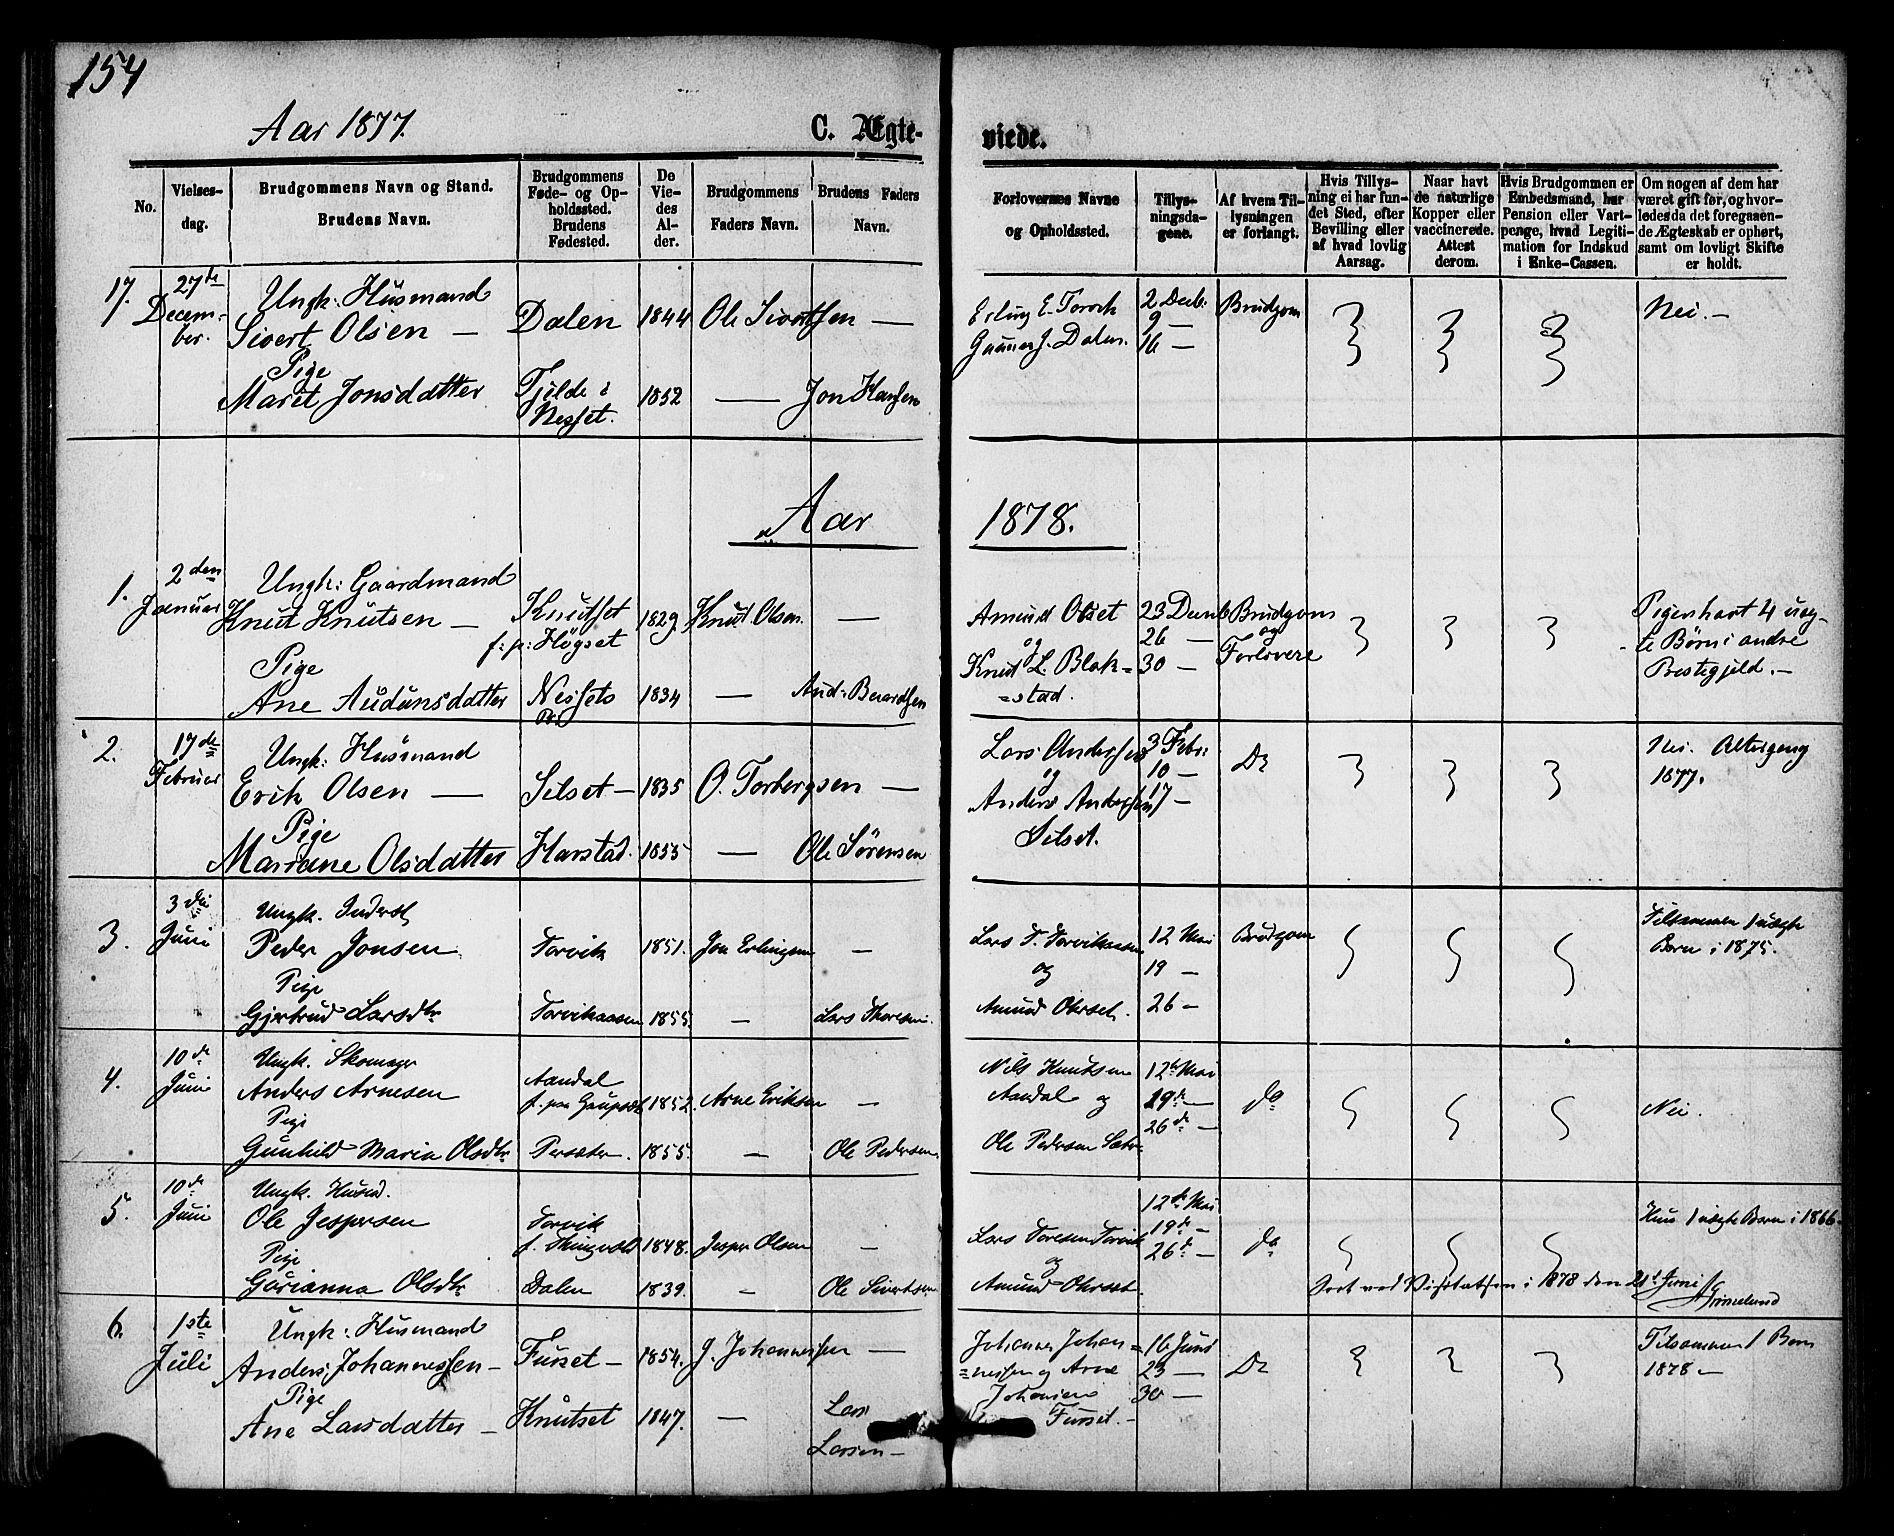 154
Aar 1877.
C. Ægte-
viede.
No.
Vielses-
dag.
Brudgommens Navn og Stand.
Brudens Navn.
Brudgommens
Føde- og Op-
holdssted.
Brudens
Fødested.
De
Vie-
des
Al-
der.
Brudgommens
Faders Navn.
Brudens Faders
Navn.
Forlovernes Navne
og Opholdssted.
Tillys-
ningsda-
gene.
Af hvem Til-
lysningen
er forlangt.
Hvis Tillys-
ning ei har fun-
det Sted, efter
Bevilling eller
af hvad lovlig
Aarsag.
Naar havt
de naturlige
Kopper eller
vaccinerede.
Attest
derom.
Hvis Brudgommen er
Embedsmand, har
Pension eller Vart-
penge, hvad Legiti-
mation for Indskud
i Enke-Cassen.
Om nogen af dem har
været gift før, og hvor-
ledes da det foregaaen-
de Ægteskab er ophørt,
samt om lovligt Skifte
er holdt.
17.
27de
Decem-
ber.
Ungk: Husmand
Sivert Olsen —
Pige
Marit Jonsdatter
Dalen
Tjelde i
Nesset.
1844
1852
Ole Sivertsen —
— Jon Hansen
Erling E. Torvik
Gunnar J. Dalen.
2 Decb:
9 —
16 —
Brudgom
Nei. —
Aar
1878.
1.
2den
Januar
Ungk: Gaardmand
Knut Knutsen —
Pige
Ane Audunsdatter
Knutset
f: p: Høgset
Nessets
1829
1834
Knut Olsen —
— Aud: Beiardsen
Amund Olset
og
Knud L. Blak=
=stad.
23 Decb
26 —
30 —
Brudgom
og
Forlovere
Pigen havt 4 uæg-
te Børn i andre
Prestegjeld. —
2.
17de
Februar
Ungk: Husmand
Erik Olsen —
Pige
Mariane Olsdatter
Silset —
Harstad.
1835
1855
O. Torbergsen —
— Ole Sørensen
Lars Andersen
og
Anders Andersen
Silset.
3 Febr:
10 —
17 —
Do
Nei. Altergang
1877.
3.
3die
Juni
Ungk. Inderst
Peder Jonsen
Pige
Gjertrud Larsdtr
Torvik
Torvikaasen
1851.
1855.
Jon Erlingsen —
— Lars Thoresen.
Lars T. Torvikaasen
og
Amund Ohrset.
12 Mai
19 —
26 —
Brudgom
Tilsammen 1 uægte
Barn i 1875.
4.
10de
Juni
Ungk. Skomager
Anders Arnesen
Pige
Gunhild Maria Olsdtr
Aandal
f. paa Gaupset
Persæter.
1852.
1855.
Arne Eriksen —
— Ole Pedersen
Nils Knutsen
Aandal og
Ole Pedersen Sæter
12te Mai
19de —
26de —
do
Nei.
5.
10de
Juni
Ungk. Husmd.
Ole Jespersen
Pige
Gurianna Olsdtr
Torvik
f. Thingvold
Dalen
1848.
1839.
Jesper Olsen —
— Ole Sivertsen
Lars Toresen Torvik
og
Amund Ohrset.
12te Mai
19de —
26de —
do
Hun 1 uægte Barn i 1866.
Seet ved Visitatsen i 1878 den 21de Juni
Grimelund
6.
1ste
Juli
Ungk: Husmand
Anders Johannessen —
Pige
Ane Larsdatter —
Furset —
Knutset
1854.
1847.
J. Johannessen —
— Lars
Larsen —
Johannes Johan=
=nessen og Arne
Johansen
Furset. —
16 Juni
23 —
30 —
Do
Tilsammen 1 Barn
1878 —